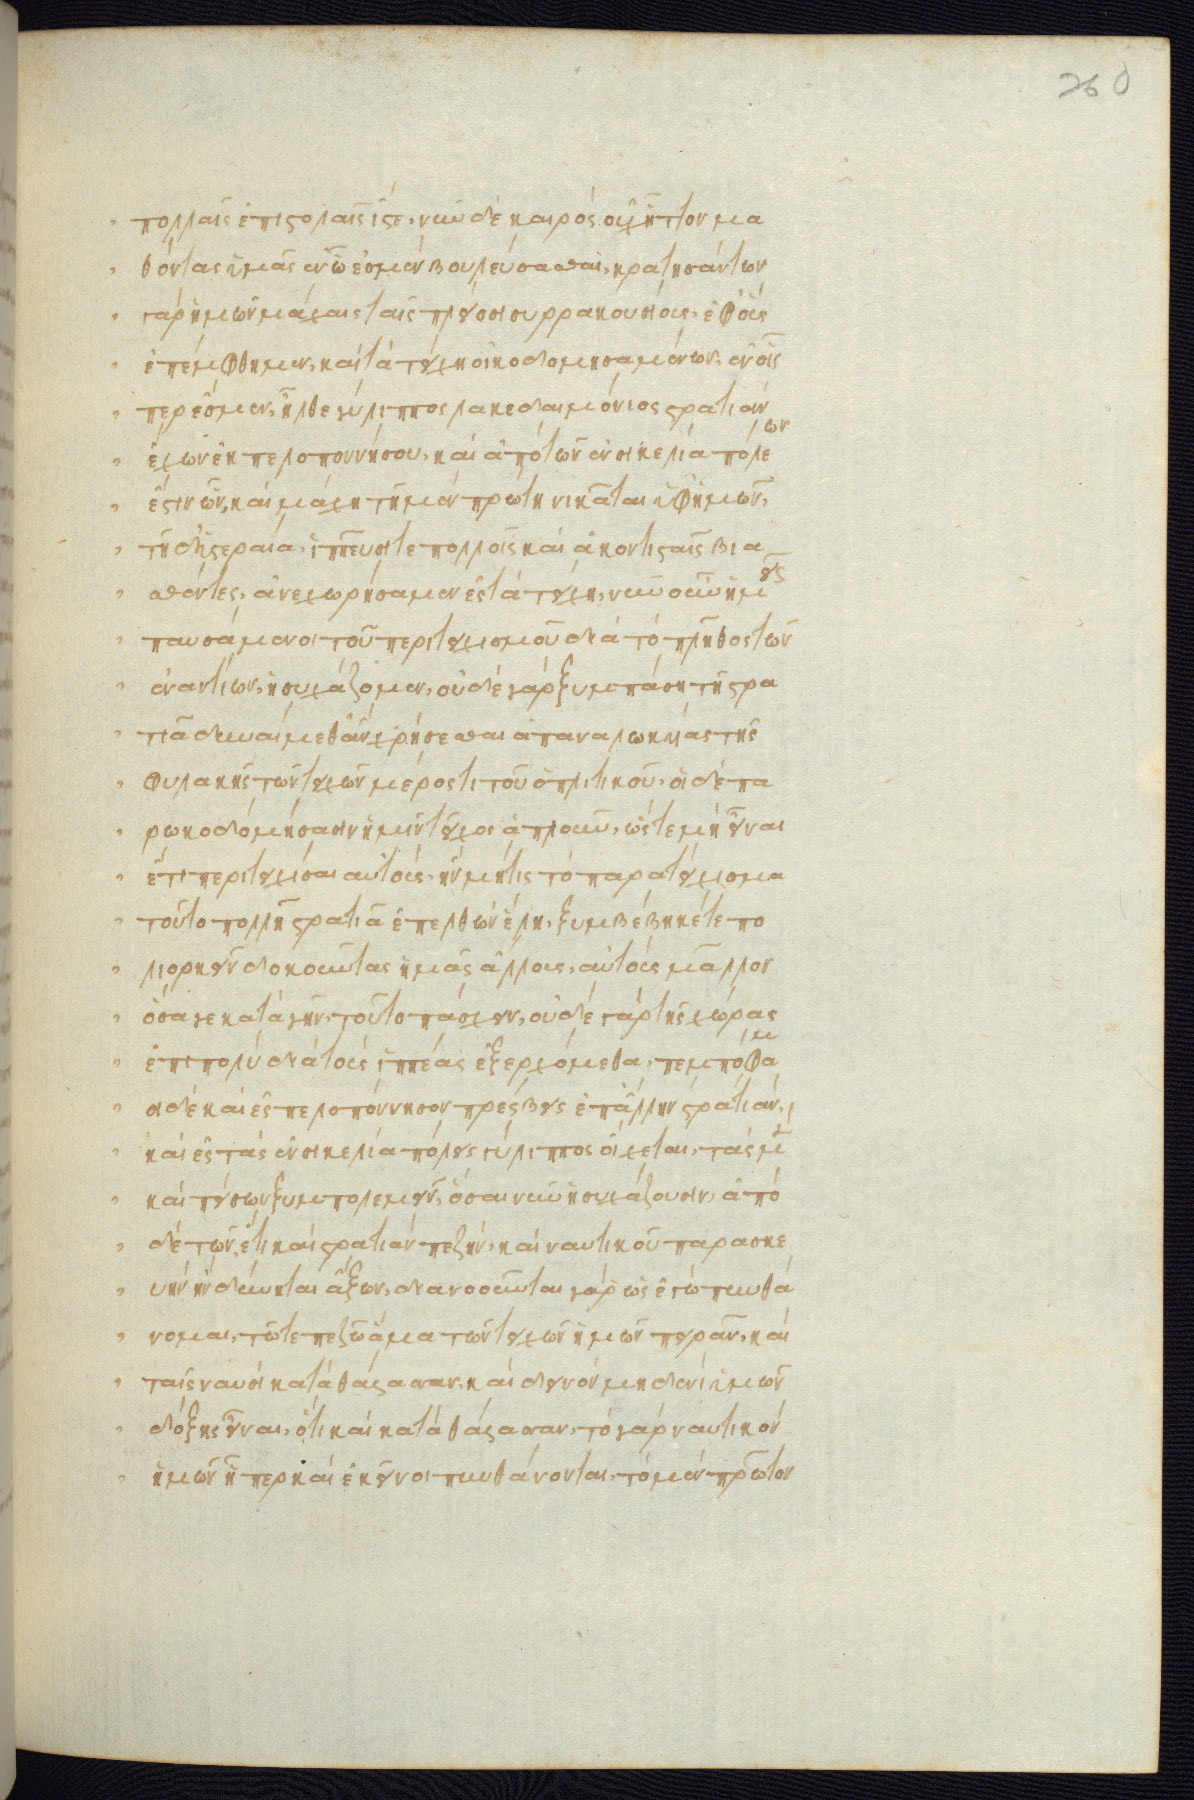 260
πολλαῖς ἐπιστολαῖς ἴστε, νῦν δὲ καιρὸς οὐχ ἧττον μα
θόντας ὑμᾶς ἐν ᾧ ἐσμὲν βουλεύσασθαι, κρατησάντων
γὰρ ἡμῶν μάχαις ταῖς πλείοσι συρρακουσίους, ἐφ' οὓς
ἐπέμφθημεν, καὶ τὰ τείχη οἰκοδομησαμένων, ἐν οἷς
περ ἐσμὲν, ἦλθε γύλιππος λακεδαιμόνιος στρατιὰν
ἔχων ἐκ πελοποννήσου, καὶ ἀπὸ τῶν ἐν σικελία πόλεων
ἔστιν ὧν, καὶ μάχη τῆ μὲν πρώτη νικᾶται ὑφ' ἡμῶν,
τῆ δ' ὑστεραία, ἱππεῦσί τε πολλοῖς καὶ ἀκοντισταῖς βια
σθέντες, ἀνεχωρήσαμεν ἐς τὰ τείχη, νῦν οὖν ἡμεῖς
παυσάμενοι τοῦ περιτειχισμοῦ διὰ τὸ πλῆθος τῶν
ἐναντίων, ἡσυχάζομεν, οὐδὲ γὰρ ξυμπάση τῆ στρα
τιᾶ δυναίμεθ' ἂν χρήσεσθαι ἀπαναλωκυίας τῆς
φυλακῆς τῶν τειχῶν μέρος τι τοῦ ὁπλιτικοῦ, οἱ δὲ πα
ρωκοδόμησαν ἡμῖν τεῖχος ἁπλοῦν, ὥστε μὴ εἶναι
ἔτι περιτειχίσαι αὐτοὺς, ἢν μή τις τὸ παρατείχισμα
τοῦτο πολλῆ στρατιᾶ ἐπελθὼν ἕλη, ξυμβέβηκέ τε πο
λιορκεῖν δοκοῦντας ἡμᾶς ἄλλους, αὐτοὺς μᾶλλον
ὅσα γε κατὰ γῆν, τοῦτο πάσχειν, οὐδὲ γὰρ τῆς χώρας
ἐπιπολὺ διὰ τοὺς ἱππέας ἐξερχόμεθα, πεπόμφα
σι δὲ καὶ ἐς πελοπόννησον πρέσβεις ἐπ' ἄλλην στρατιάν,
καὶ ἐς τὰς ἐν σικελία πόλεις γύλιππος οἴχεται, τὰς μὲν
καὶ πείσων ξυμπολεμεῖν, ὅσαι νῦν ἡσυχάζουσιν, ἀπὸ
δὲ τῶν, ἔτι καὶ στρατιὰν πεζὴν, καὶ ναυτικοῦ παρασκε
υὴν ἢν δύνηται ἄξων, διανοοῦνται γὰρ ὡς ἐγὼ πυνθά
νομαι, τῷ τε πεζῶ ἅμα τῶν τειχῶν ἡμῶν πειρᾶν, καὶ
ταῖς ναυσὶ κατὰ θάλασσαν, καὶ δεινὸν μηδενὶ ὑμῶν
δόξη εἶναι, ὅτι καὶ κατὰ θάλασσαν, τὸ γὰρ ναυτικὸν
ἡμῶν ἧπερ καὶ ἐκεῖνοι πυνθάνονται, τὸ μὲν πρῶτον